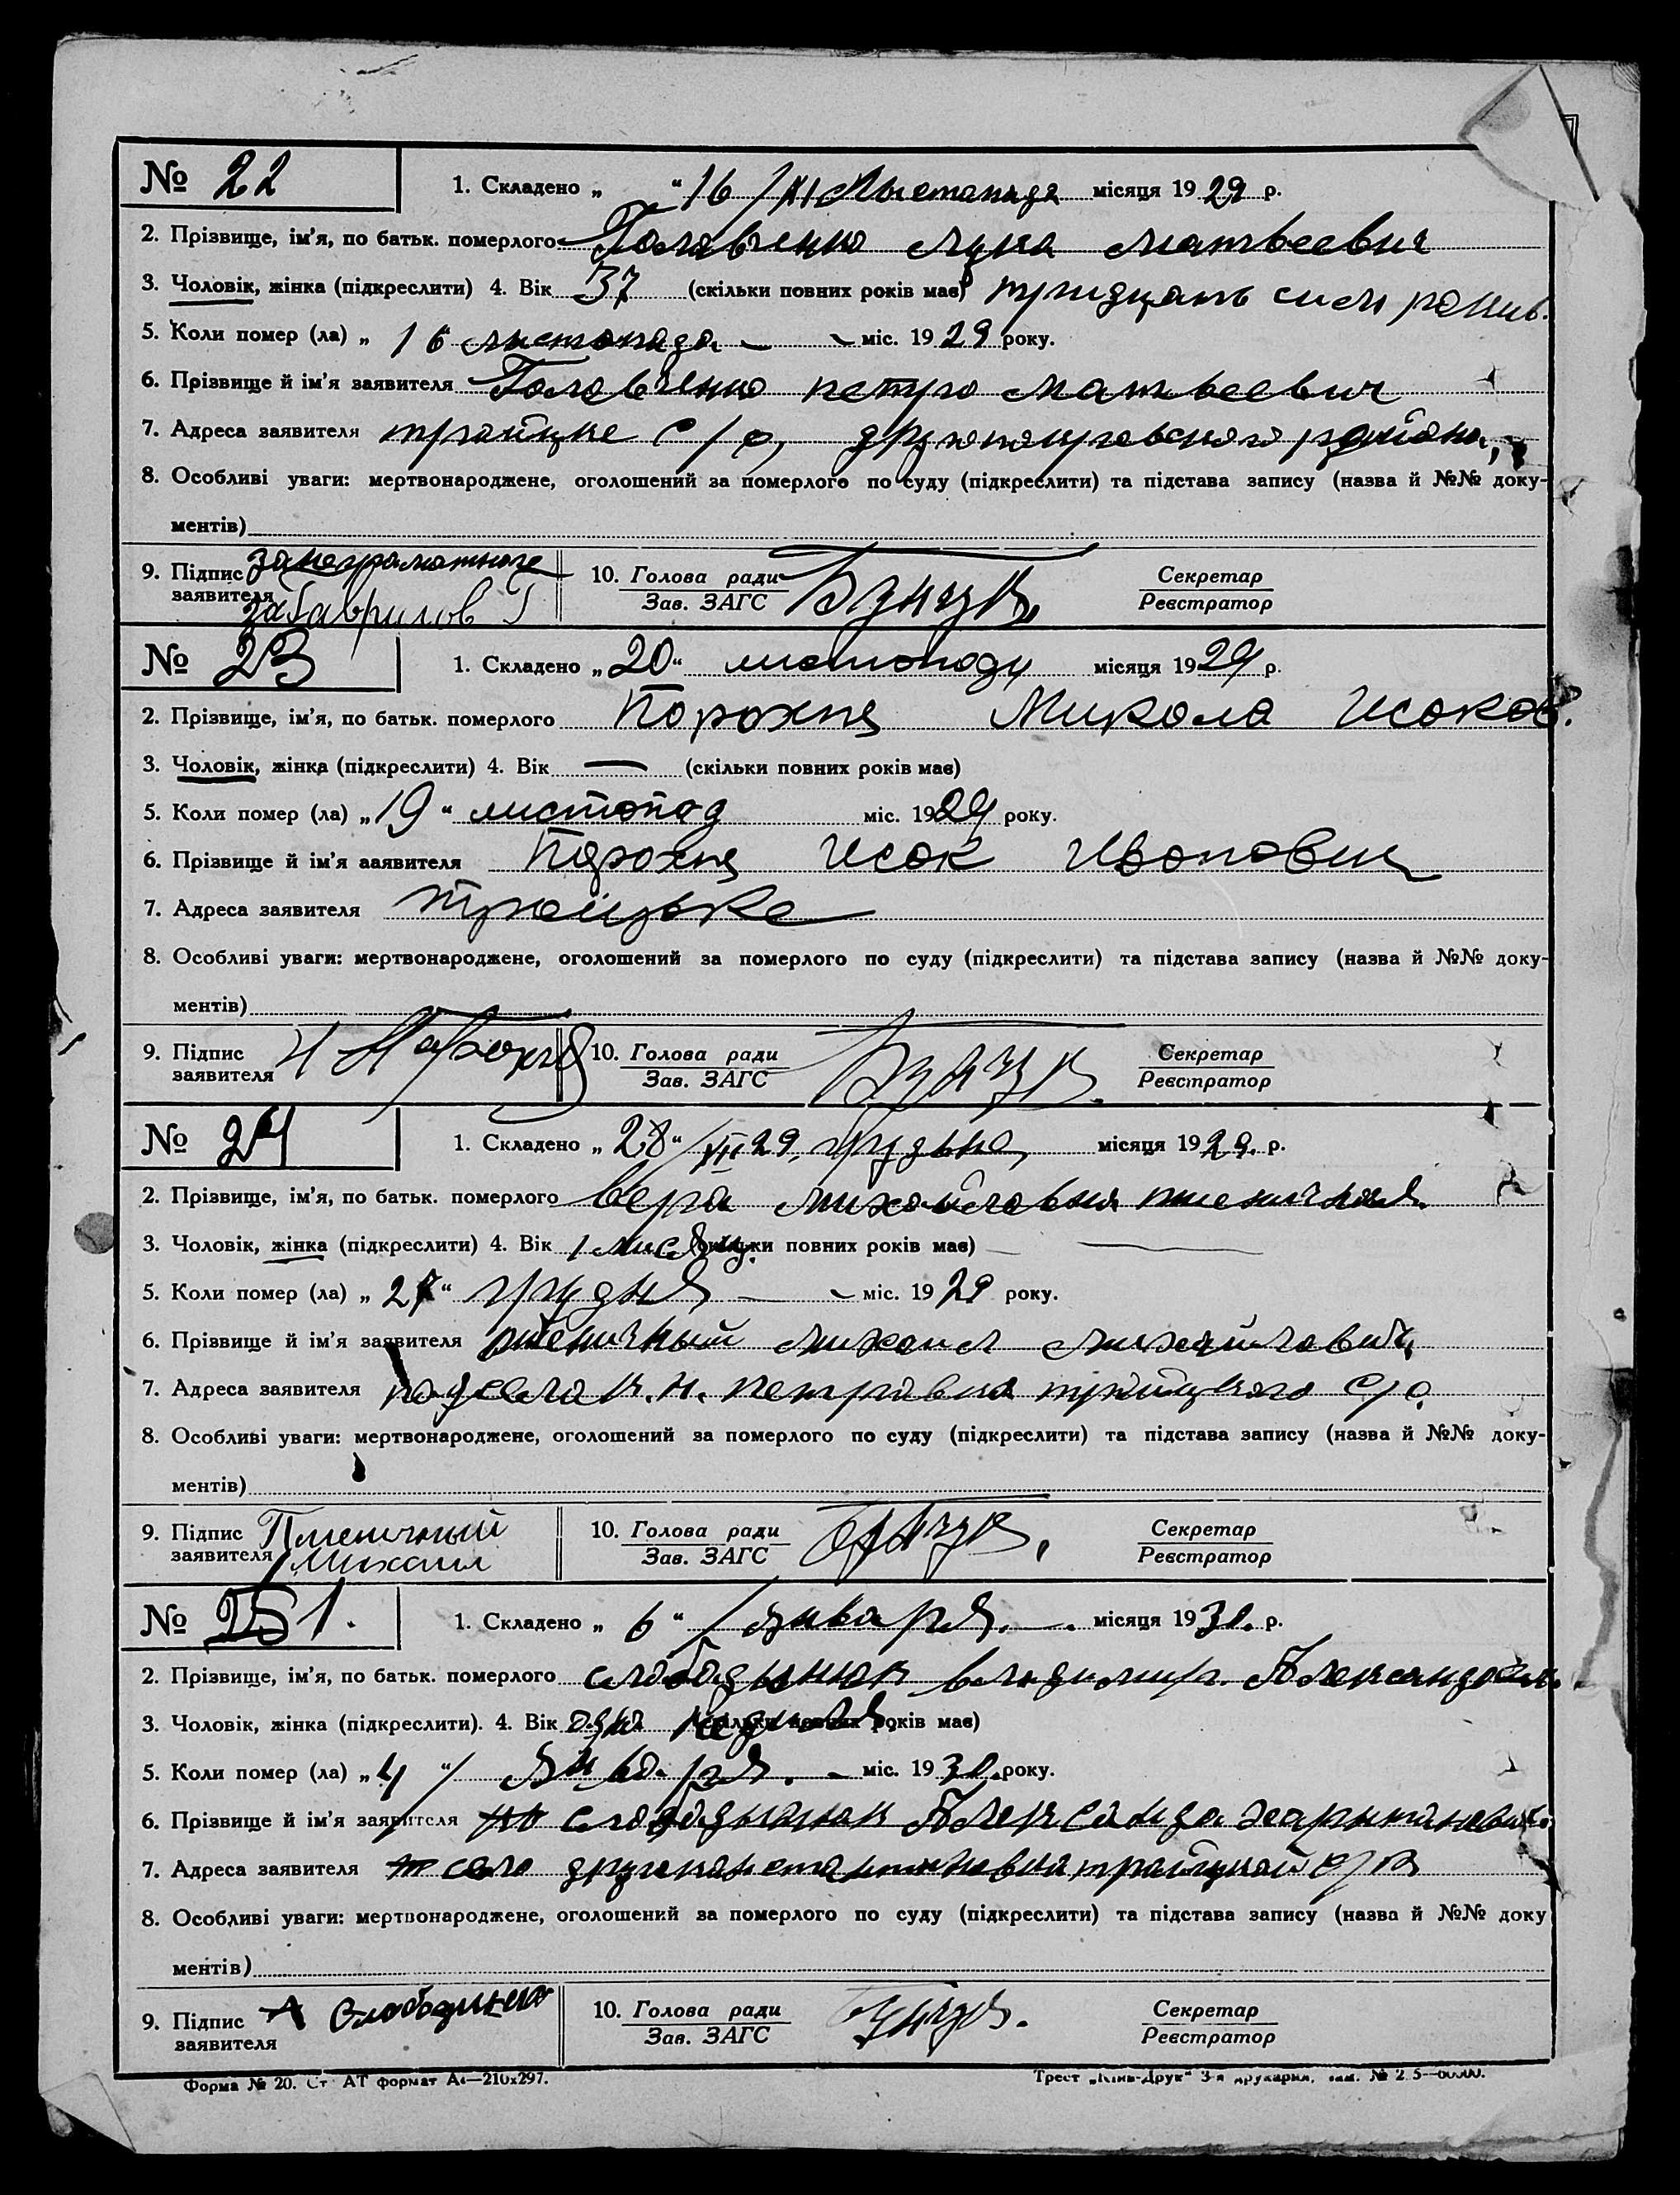 № 22
1. Складено „ “ 16/XI Листопада місяця 1929 р.
2. Прізвище, ім’я, по батьк. померлого Головченко Лука Матвеевич
3. Чоловік, жінка (підкреслити) 4. Вік 37 (скільки повних років має) тридцать
5. Коли помер (ла) „ 16 листопада міс. 1929 року.
6. Прізвище й ім’я заявителя Головченко петро Матвеевич
7. Адреса заявителя тройцке с/р, района,
8. Особливі уваги: мертвонароджене, оголошений за померлого по суду (підкреслити) та підстава запису (назва й №№ доку-
ментів)
9. Підпис заявителя за неграмотного
за Гаврилов Г
10. Голова ради
Зав. ЗАГС
Секретар
Реєстратор
№ 23
1. Складено „ 20 “ листопаду місяця 1929 р.
2. Прізвище, ім’я, по батьк. померлого Порохня Микола Исаков.
3. Чоловік, жінка (підкреслити) 4. Вік — (скільки повних років має)
5. Коли помер (ла) „ 19 “ листопад міс. 1929 року.
6. Прізвище й ім’я заявителя Порохня Исак Иванович
7. Адреса заявителя Троицьке
8. Особливі уваги: мертвонароджене, оголошений за померлого по суду (підкреслити) та підстава запису (назва й №№ доку-
ментів)
9. Підпис заявителя
10. Голова ради
Зав. ЗАГС
Секретар
Реєстратор
№ 24
1. Складено „ 28 “ /XII 29, грудьня місяця 1929. р.
2. Прізвище, ім’я, по батьк. померлого Вера михайловна пшеничная
3. Чоловік, жінка (підкреслити) 4. Вік 1 месяц. (скільки повних років має) —
5. Коли помер (ла) „ 27 “ грудня міс. 1929 року.
6. Прізвище й ім’я заявителя пшеничный михаил михайлович,
7. Адреса заявителя село К. Н. петровка тройцкого с/р.
8. Особливі уваги: мертвонароджене, оголошений за померлого по суду (підкреслити) та підстава запису (назва й №№ доку-
ментів)
9. Підпис заявителя Пшеничный
Михаил
10. Голова ради
Зав. ЗАГС
Секретар
Реєстратор
№ 25 1.
1. Складено „ 6 “ / января. місяця 1930. р.
2. Прізвище, ім’я, по батьк. померлого слободянюк владимир. Александрович.
3. Чоловік, жінка (підкреслити). 4. Вік одна неделя. (скільки повних років має)
5. Коли помер (ла) „ 4 “ Января. міс. 1930. року.
6. Прізвище й ім’я заявителя слободянюк Александр харитонович.
7. Адреса заявителя село тройцкой с/р
8. Особливі уваги: мертвонароджене, оголошений за померлого по суду (підкреслити) та підстава запису (назва й №№ доку
ментів)
9. Підпис заявителя А
10. Голова ради
Зав. ЗАГС
Секретар
Реєстратор
Форма № 20. Ст АТ формат А4—210х297.
Трест „Київ-Друк“ 3-я друкарня, зам. №